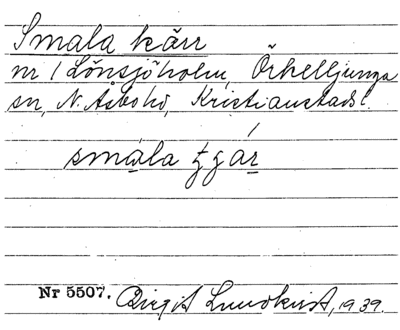 Smala kärr
nr 1 Lönsjöholm, Örkelljunga
sn, N. Åsbo hd, Kristianstads l.
smala
Nr 5507. Birgit Lundkvist, 1939.